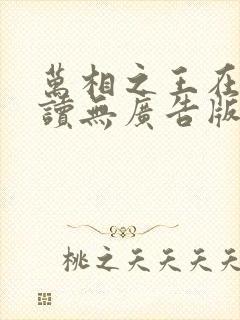 萬相之王在
讀無廣告版
桃之夭夭夭夭